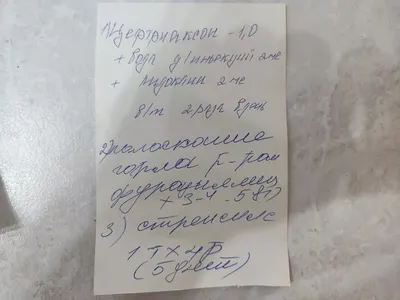 1) Цефтриаксон - 1,0
+ вода д/инъекций 2 мл
+ лидокаин 2 мл
в/м 2 раза в день
2) полоскание
горла р-ром
фурацилин
+ 3-4
3) стрепсилс
1 т x 4 р
(5 дней)